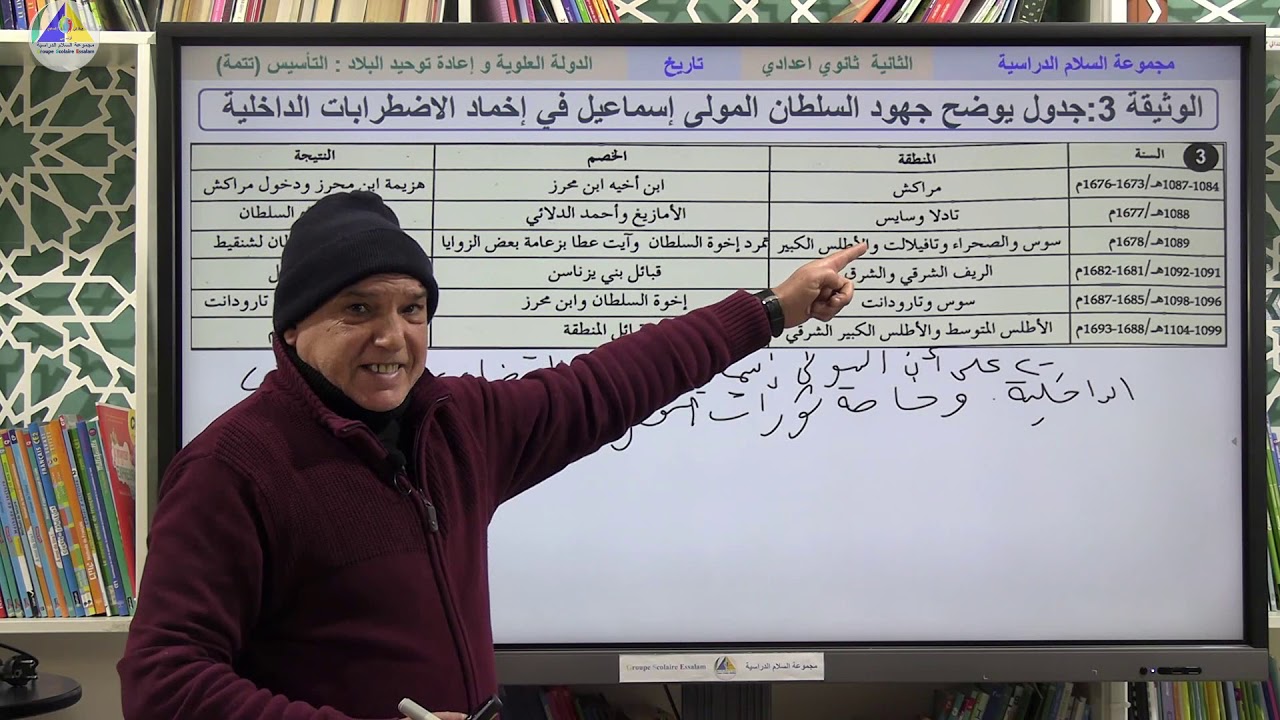 مجموعة السلام الدراسية
Groupe Scolaire Essalam
مجموعة السلام الدراسية الثانية ثانوي اعدادي تاريخ الدولة العلوية و إعادة توحيد البلاد : التأسيس (تتمة)
الوثيقة 3:جدول يوضح جهود السلطان المولى إسماعيل في إخماد الاضطرابات الداخلية
3 السنة المنطقة الخصم النتيجة
1084-1087هـ/1673-1676م مراكش ابن أخيه ابن محرز هزيمة ابن محرز ودخول مراكش
1088هـ/1677م تادلا وسايس الأمازيغ وأحمد الدلائي السلطان
1089هـ/1678م سوس والصحراء وتافيلالت والأطلس الكبير تمرد إخوة السلطان وآيت عطا بزعامة بعض الزوايا لشنقيط
1091-1092هـ/1681-1682م الريف الشرقي والشرق قبائل بني يزناسن
1096-1098هـ/1685-1687م سوس وتارودانت إخوة السلطان وابن محرز تارودانت
1099-1104هـ/1688-1693م الأطلس المتوسط والأطلس الكبير الشرقي المنطقة
على أن المولى
الداخلية. وخاصة ثورات
Groupe Scolaire Essalam مجموعة السلام الدراسية